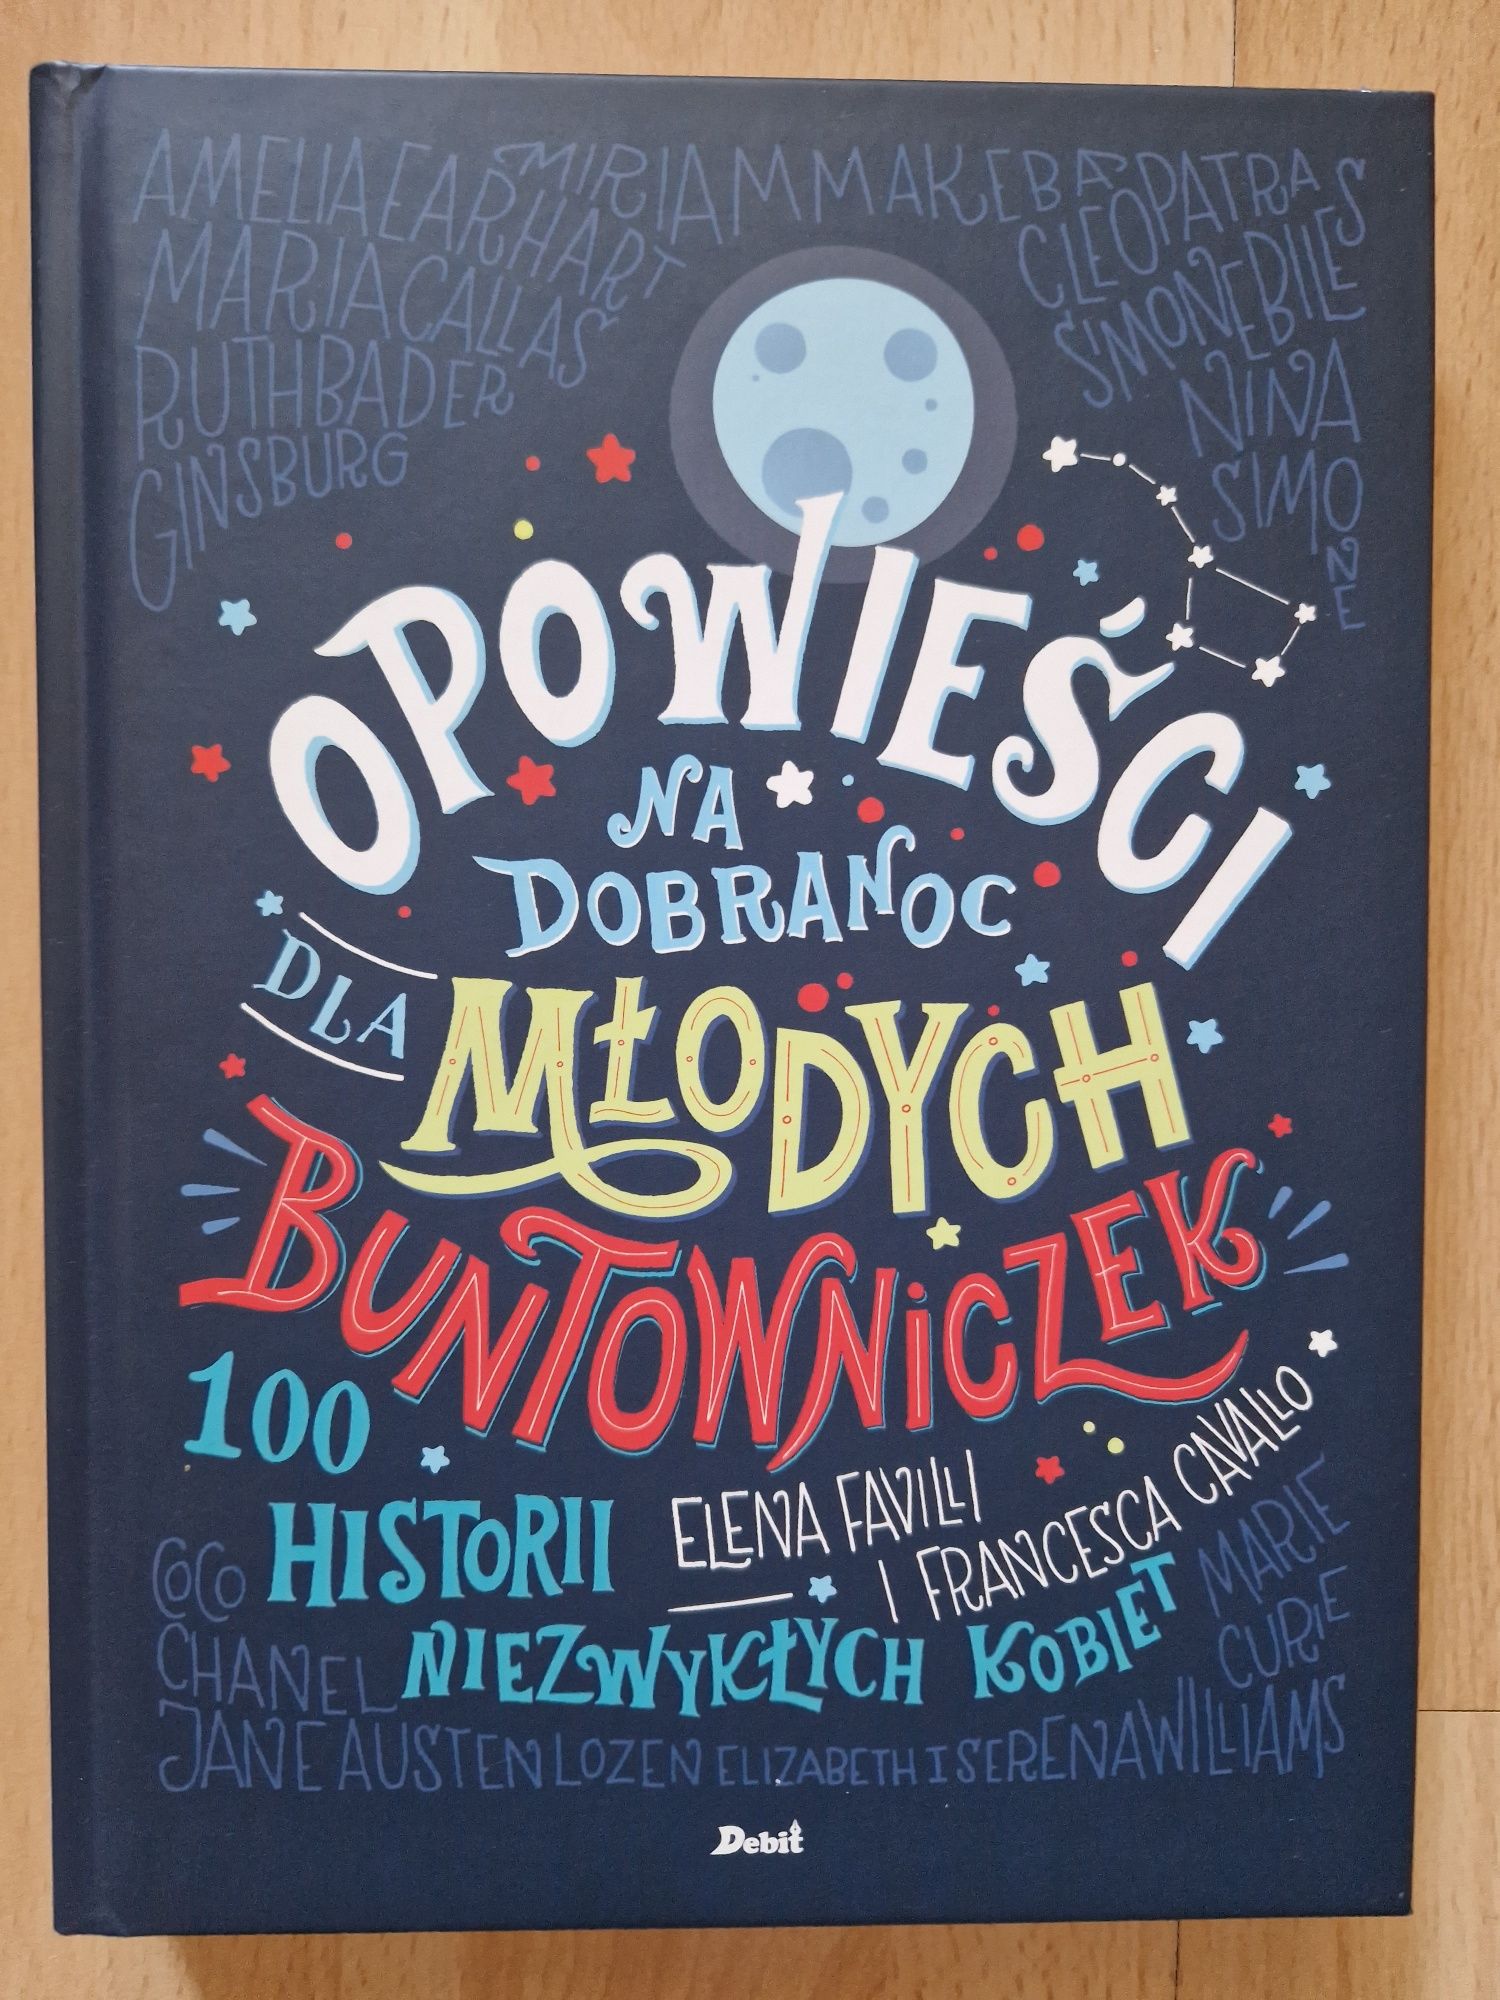 AMELIA EARHART
MIRIAM MAKEBA
CLEOPATRA
MARIA CALLAS
SIMONE BILES
RUTH BADER
GINSBURG
NINA
SIMONE
OPOWIEŚCI
NA
DOBRANOC
DLA
MŁODYCH
BUNTOWNICZEK
100
HISTORII
NIEZWYKŁYCH KOBIET
ELENA FAVILLI
I FRANCESCA CAVALLO
COCO
CHANEL
MARIE
CURIE
JANE AUSTEN LOZEN ELIZABETH I SERENA WILLIAMS
Debit